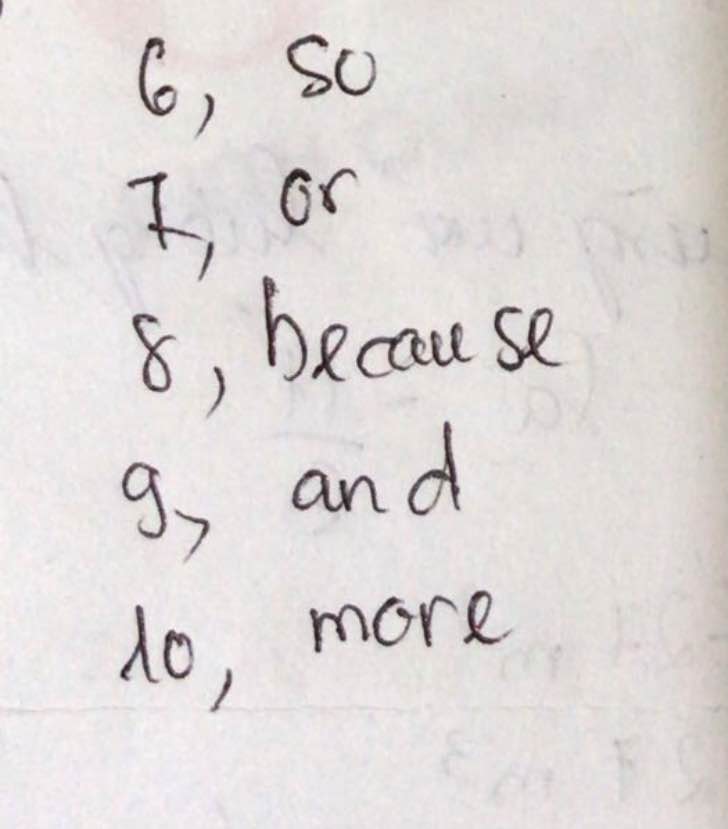 6, so
7, or
8, because
9, and
10, more